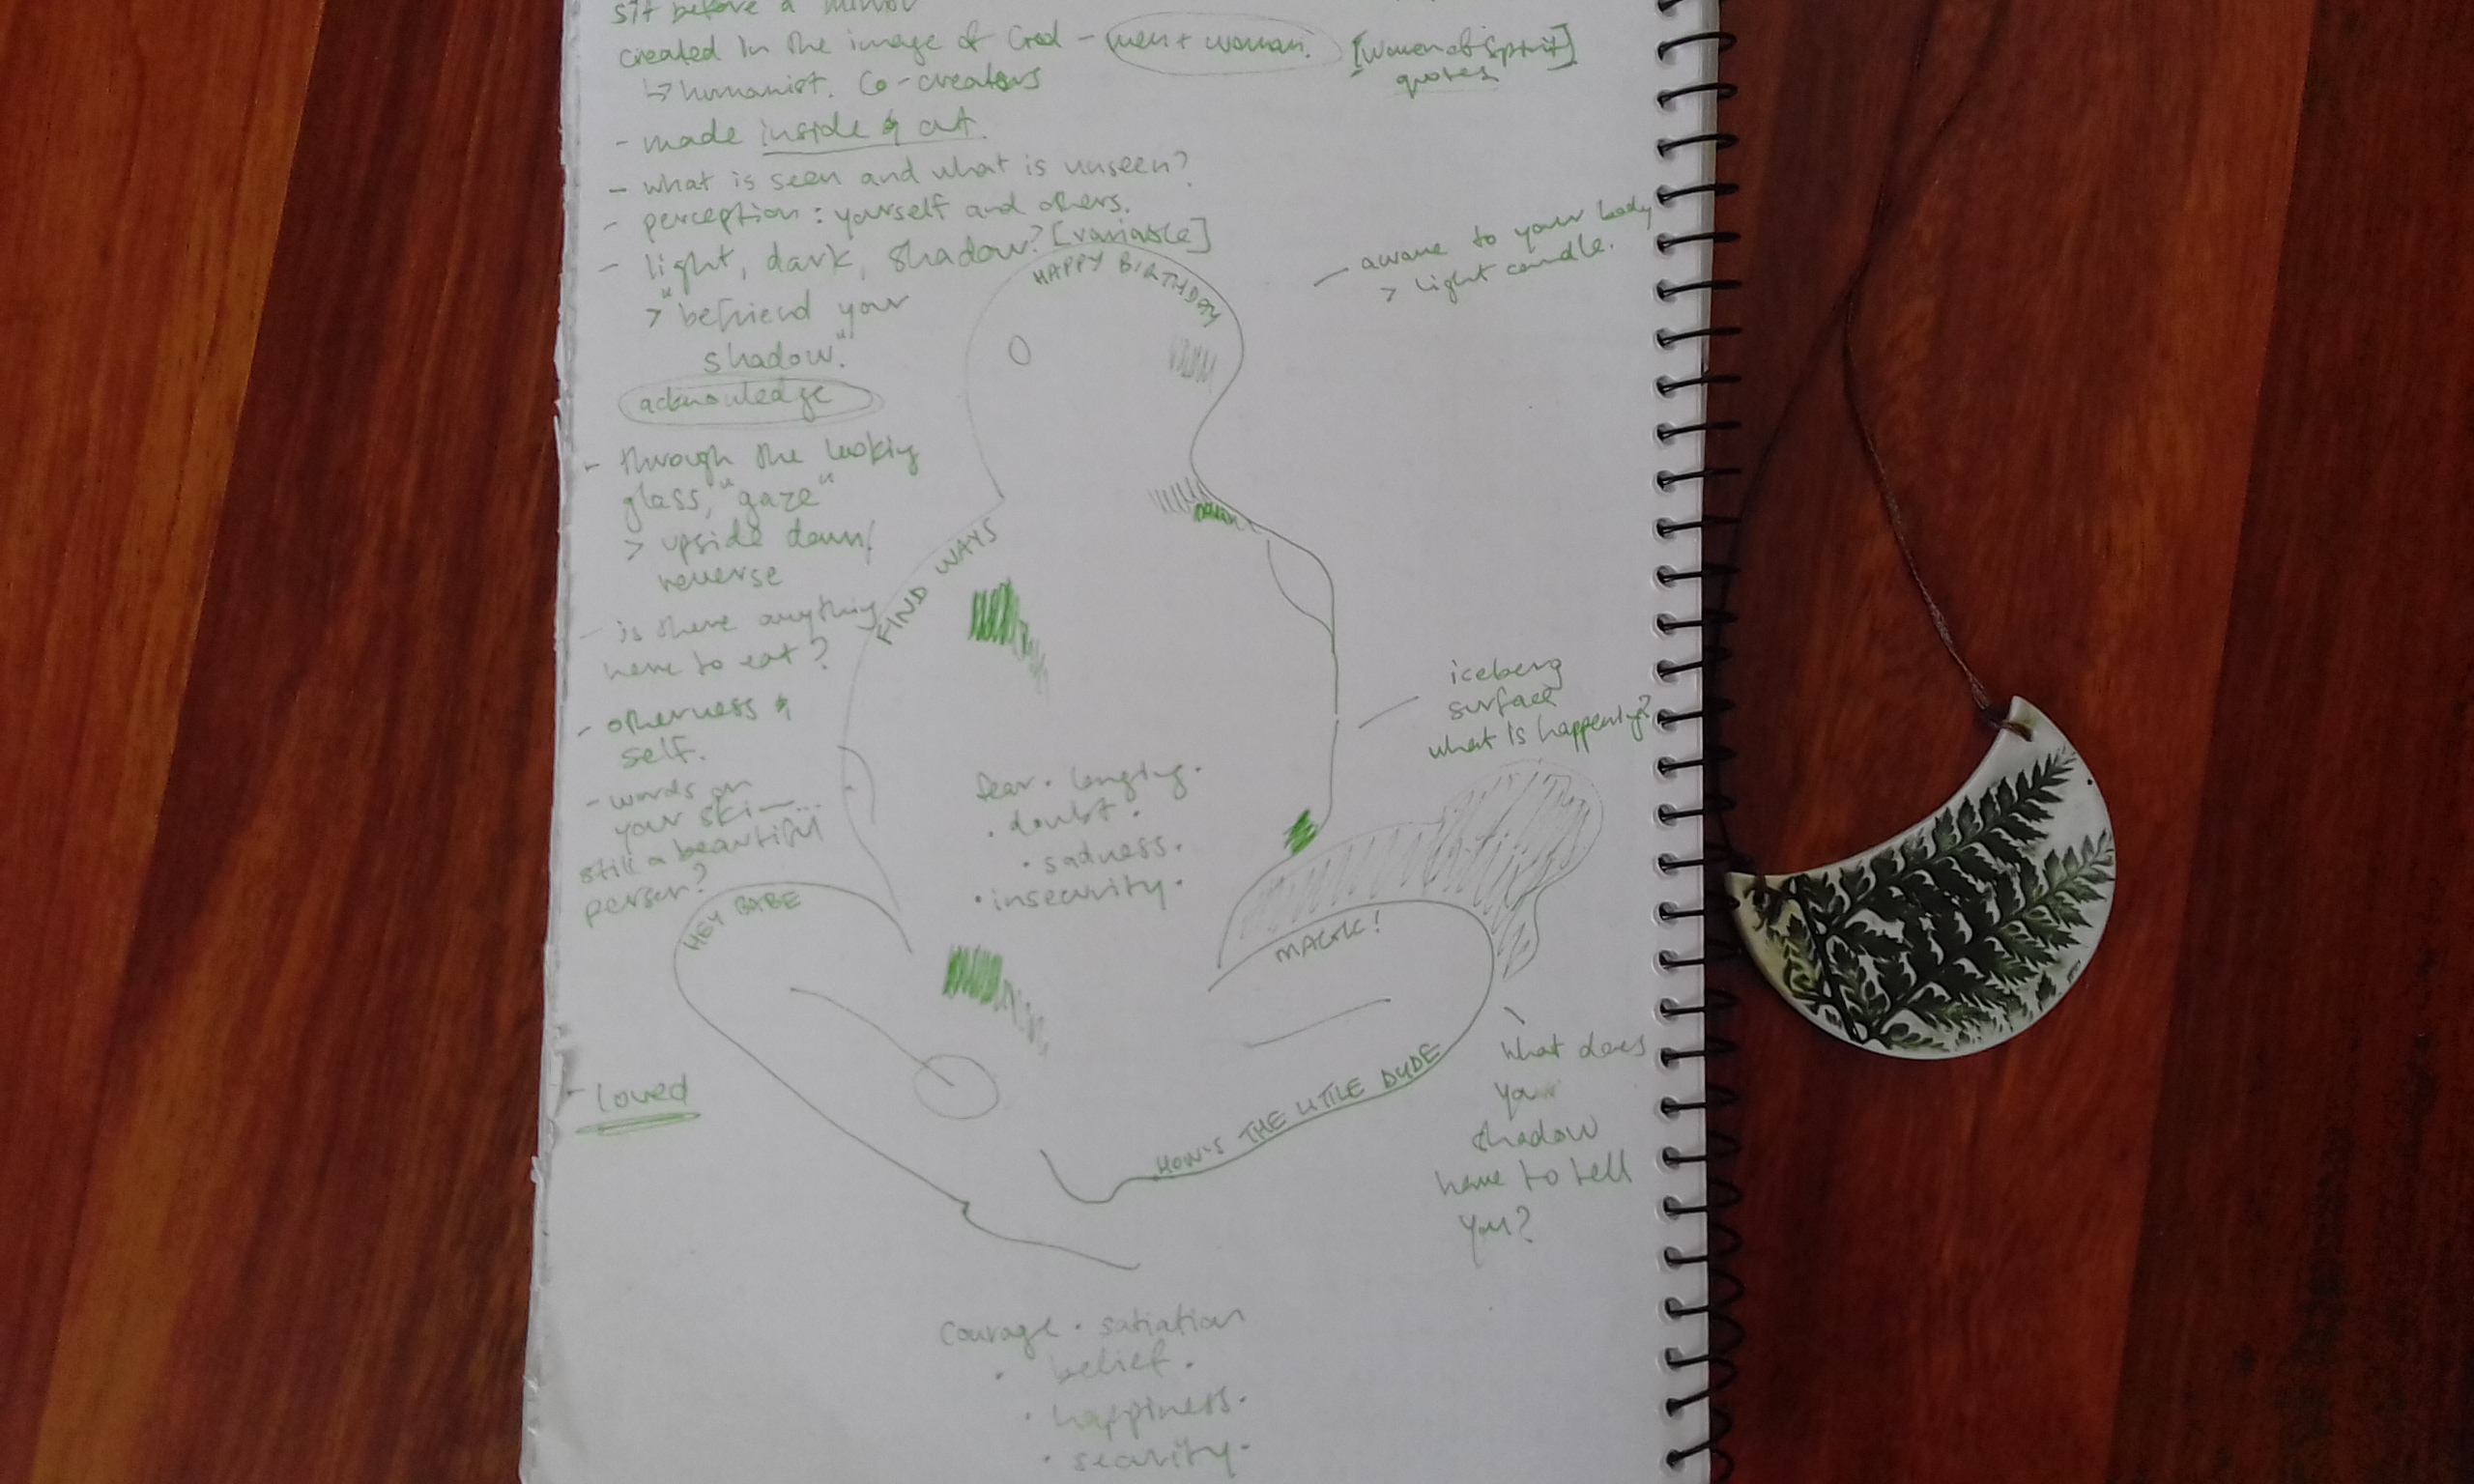 sit before a mirror
created in the image of God - men + woman. [Women of Spirit]
quotes
↳ humanist. Co-creators
- made inside & out.
- what is seen and what is unseen?
- perception: yourself and others.
- light, dark, shadow? [variable]
> "befriend your
shadow."
acknowledge
- through the looking
glass, "gaze"
> upside down/
reverse
- is there anything
here to eat?
- otherness &
self.
- words on
your skin...
still a beautiful
person?
- Loved
HAPPY BIRTHDAY
- aware to your body
> light candle.
FIND WAYS
iceberg
surface
what is happening?
fear. longing.
. doubt.
. sadness.
. insecurity.
HEY BABE
MAGIC!
HOW'S THE LITTLE DUDE
What does
your
shadow
have to tell
you?
Courage. satiation
. belief.
. happiness.
. security.